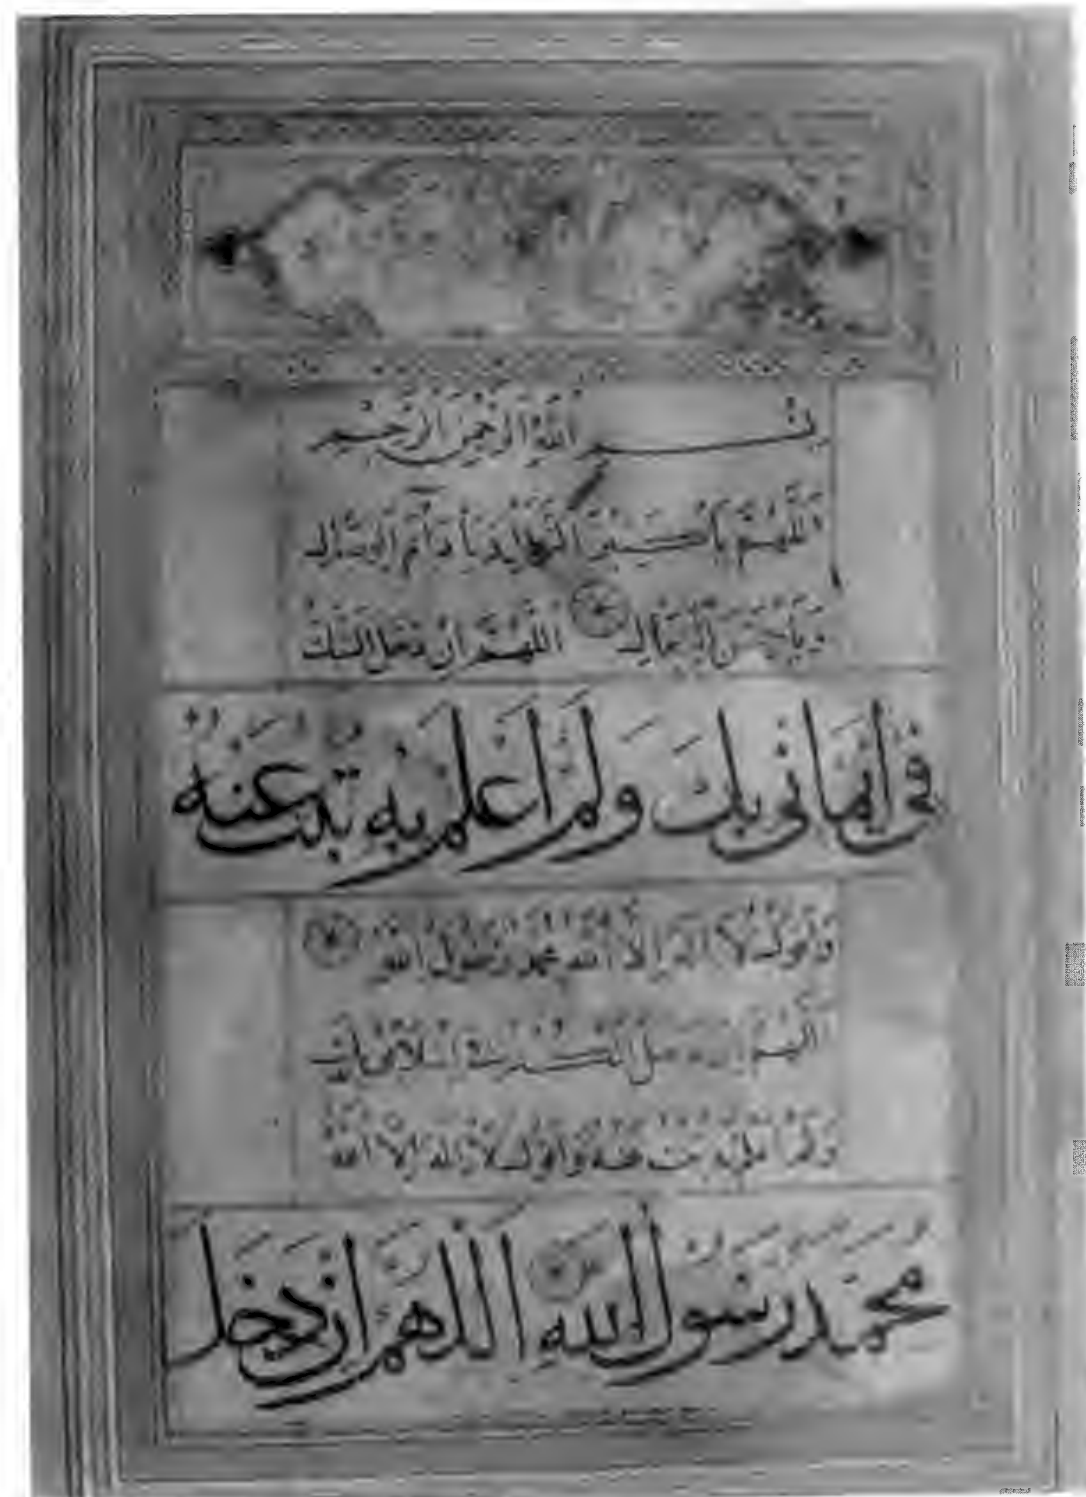 بسم الله الرحمن الرحيم
اللهم يا كثير النوال ويا دائم الوصال
ويا حسن الفعال اللهم ان دخل الشك
في ايماني بك ولم اعلم به تبت عنه
واقول لا اله الا الله محمد رسول الله
اللهم ان دخل
ولم اعلم به تبت عنه واقول لا اله الا الله
محمد رسول الله اللهم ان دخل